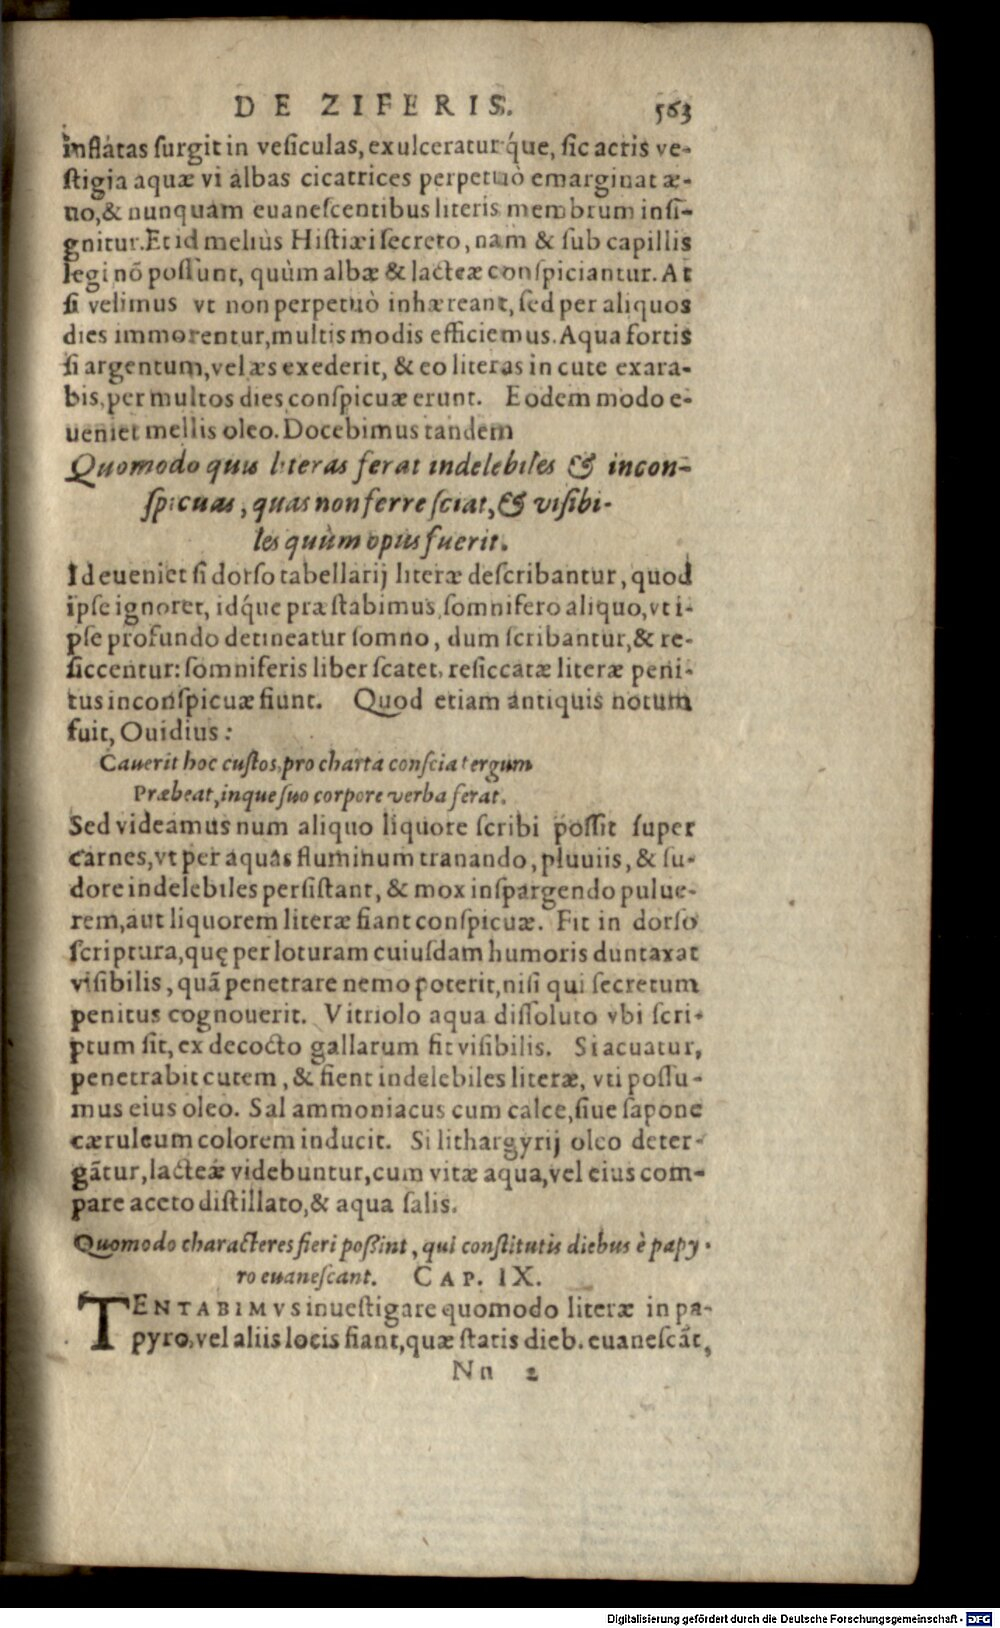 DE ZIFERIS. 563
inflatas ſurgit in veſiculas, exulceraturq́ue, ſic acris ve-
ſtigia aquæ vi albas cicatrices perpetuò emarginat æ-
no, & nunquam euaneſcentibus literis membrum inſi-
gnitur. Et id meliùs Hiſtiæi ſecreto, nam & ſub capillis
legi nõ poſſunt, quùm albæ & lacteæ conſpiciantur. At
ſi velimus vt non perpetuò inhæreant, ſed per aliquos
dies immorentur, multis modis efficiemus. Aqua fortis
ſi argentum, vel æs exederit, & eo literas in cute exara-
bis, per multos dies conſpicuæ erunt. Eodem modo e-
ueniet mellis oleo. Docebimus tandem
Quomodo quis literas ferat indelebiles & incon-
ſpicuas, quas non ferre ſciat, & viſibi-
les quùm opus fuerit.
Id eueniet ſi dorſo tabellarij literæ deſcribantur, quod
ipſe ignoret, idq́ue præſtabimus ſomnifero aliquo, vt i-
pſe profundo detineatur ſomno, dum ſcribantur, & re-
ſiccentur: ſomniferis liber ſcatet, reſiccatæ literæ peni-
tus inconſpicuæ fiunt. Quod etiam antiquis notum
fuit, Ouidius:
Cauerit hoc cuſtos, pro charta conſcia tergum
Præbeat, inque ſuo corpore verba ferat.
Sed videamus num aliquo liquore ſcribi poſſit ſuper
carnes, vt per aquas fluminum tranando, pluuiis, & ſu-
dore indelebiles perſiſtant, & mox inſpargendo pulue-
rem, aut liquorem literæ fiant conſpicuæ. Fit in dorſo
ſcriptura, quę per loturam cuiuſdam humoris duntaxat
viſibilis, quã penetrare nemo poterit, niſi qui ſecretum
penitus cognouerit. Vitriolo aqua diſſoluto vbi ſcri-
ptum ſit, ex decocto gallarum fit viſibilis. Si acuatur,
penetrabit cutem, & fient indelebiles literæ, vti poſſu-
mus eius oleo. Sal ammoniacus cum calce, ſiue ſapone
cæruleum colorem inducit. Si lithargyrij oleo deter-
gãtur, lacteæ videbuntur, cum vitæ aqua, vel eius com-
pare aceto diſtillato, & aqua ſalis.
Quomodo characteres fieri poſſint, qui conſtitutis diebus è papy-
ro euaneſcant. CAP. IX.
TENTABIMVS inueſtigare quomodo literæ in pa-
pyro, vel aliis locis fiant, quæ ſtatis dieb. euaneſcãt,
Nn 2
Digitalisierung gefördert durch die Deutsche Forschungsgemeinschaft - DFG